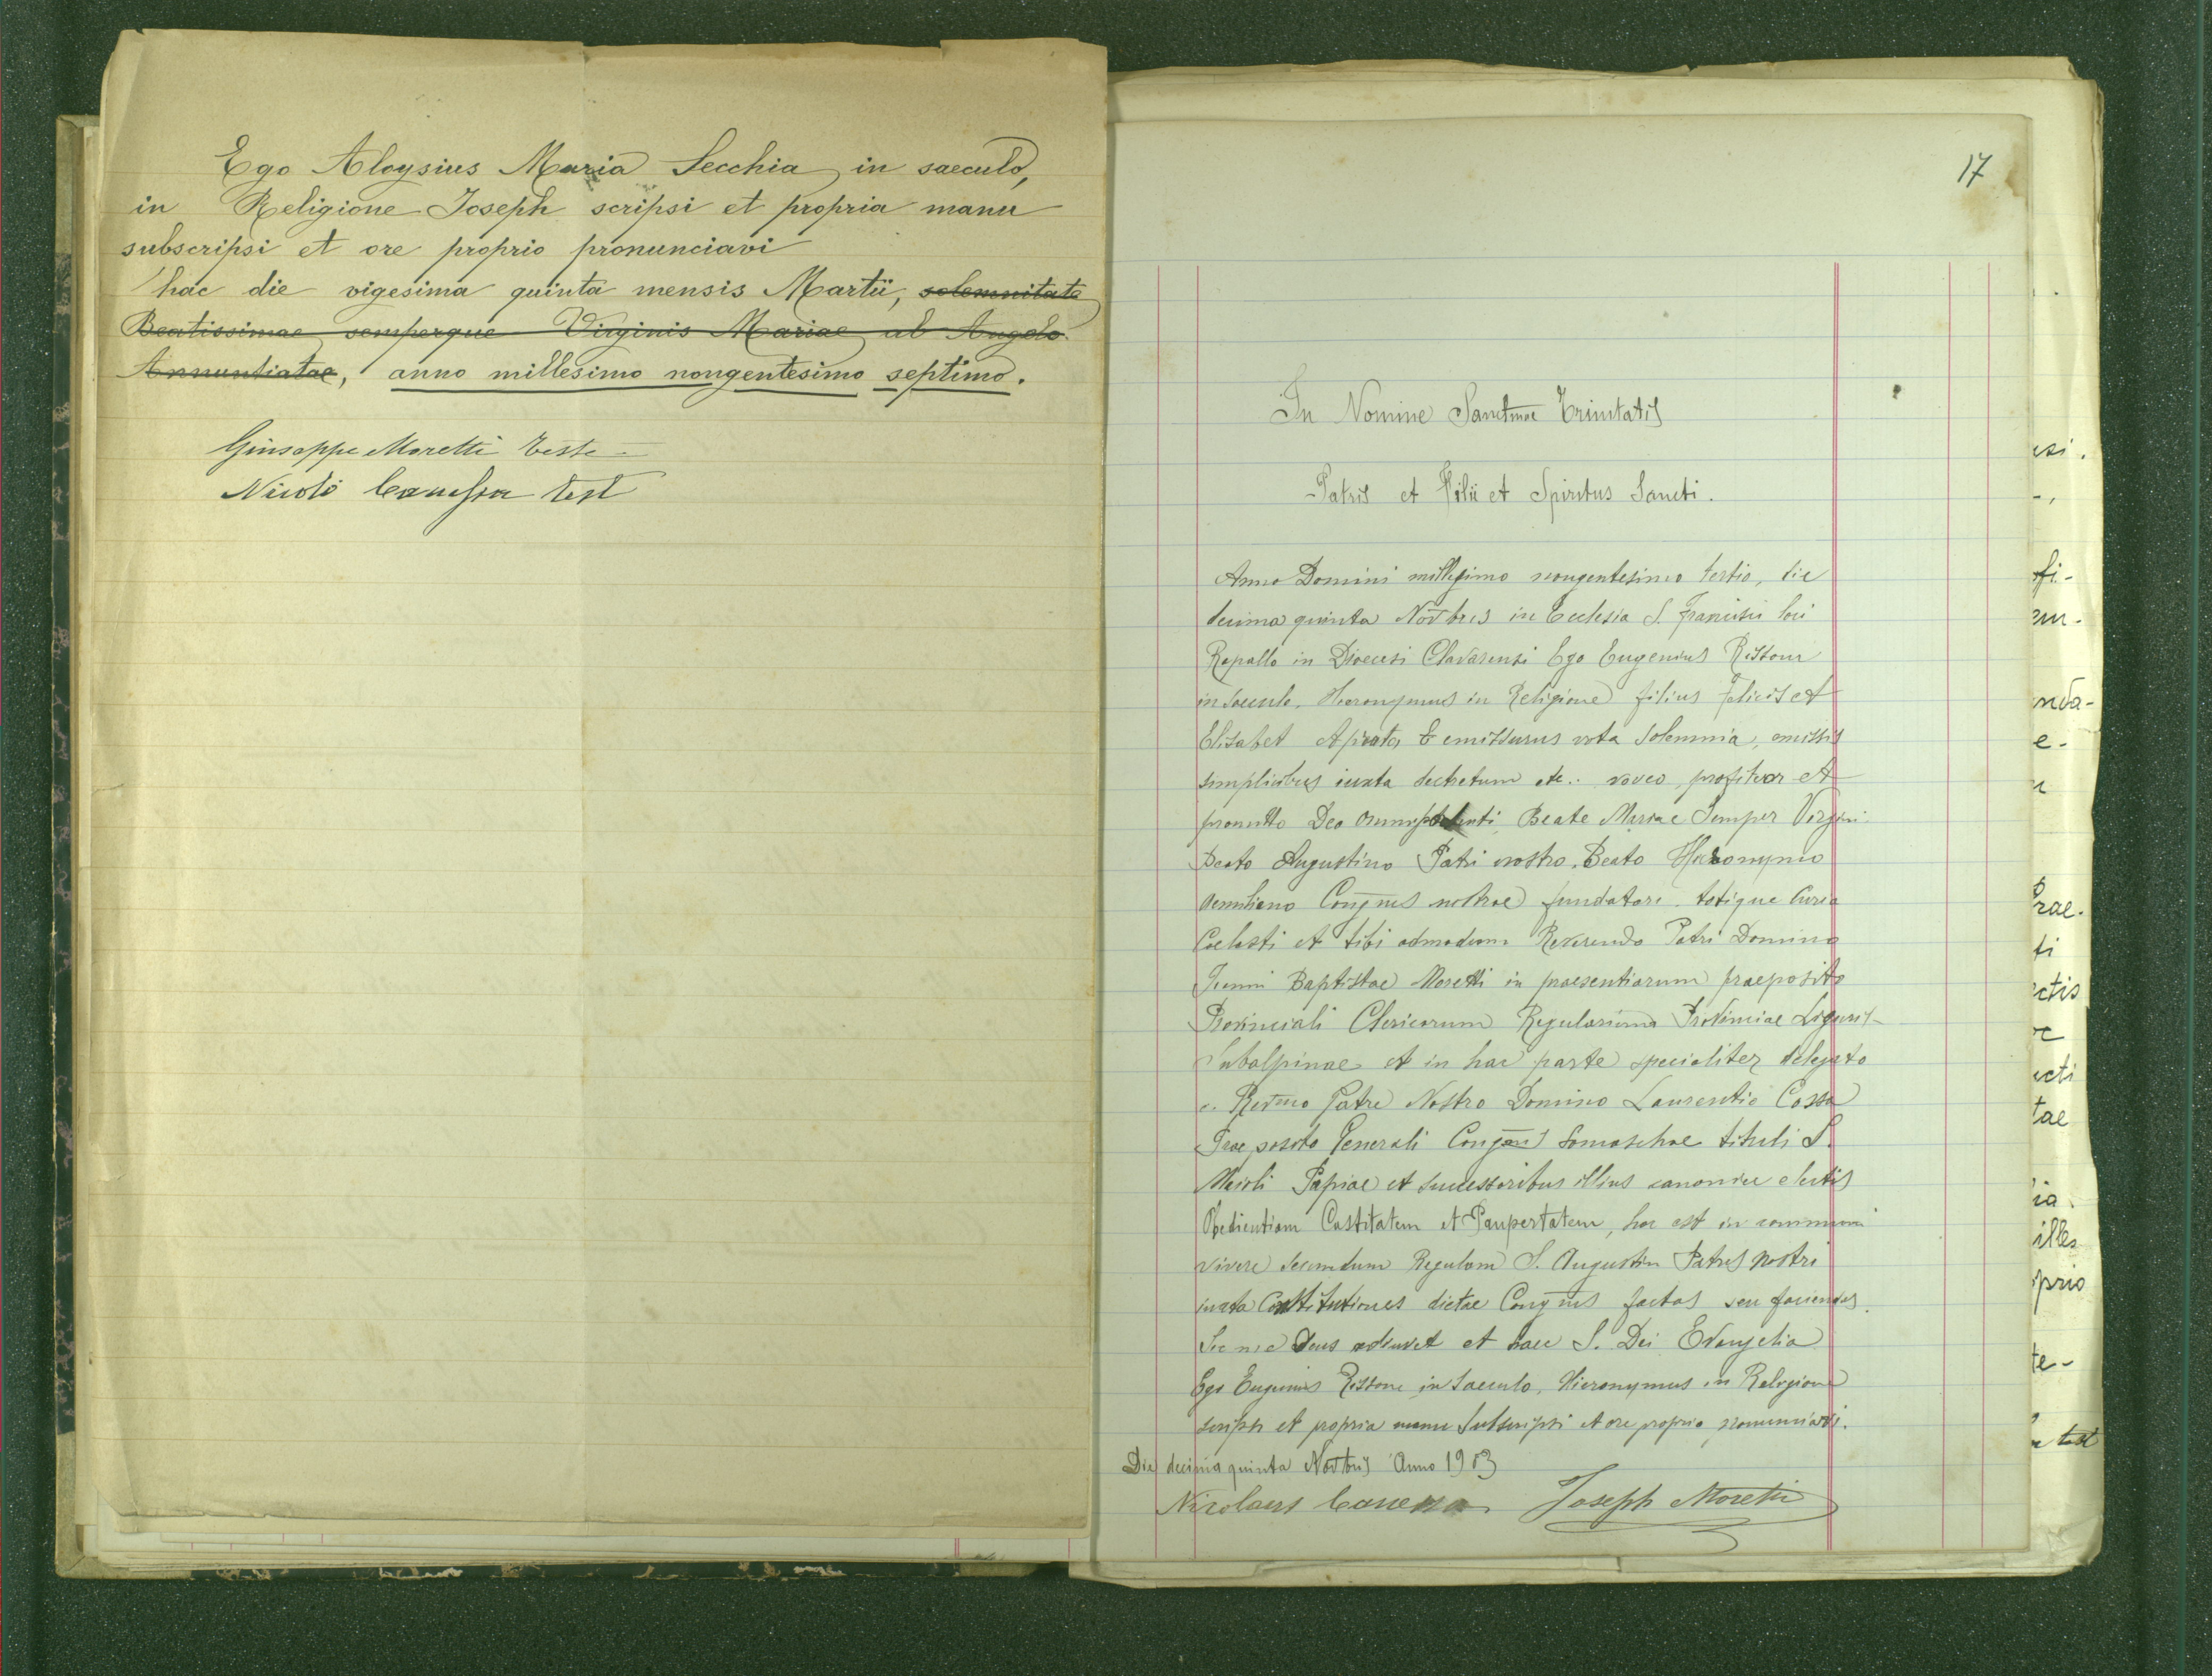 Ego Aloysius Maria Secchia in saeculo,
in Religione Joseph scripsi et propria manu
subscripsi et ore proprio pronunciavi
hac die vigesima quinta mensis Martii, solemnitate
Beatissimae semperque Virginis Mariae ab Angelo
Annuntiatae, anno millesimo nongentesimo septimo.
Giuseppe Moretti teste
Nicolò Canessa test
17
In Nomine Sanctmae Trinitatis
Patris et Filii et Spiritus Sancti.
Anno Domini millesimo nongentesimo tertio, die
decima quinta Novbris in Ecclesia S. Francisci loci
Rapallo in Dioecesi Clavarensi Ego Eugenius Rissone
in Saeculo, Hieronymus in Religione filius Felicis et
Elisabet emissurus vota Solemnia, emissis
simplicibus iuxta dechetum etc. voveo, profiteor et
promitto Deo Omnipotenti, Beate Mariae Semper Virgini
Beato Augustino Patri nostro, Beato Hieronymo
Aemiliano Congnis nostrae fundatori totique Curia
Coelesti et tibi admodum Reverendo Patri Domino
Joanni Baptistae Moretti in praesentiarum praeposito
Provinciali Clericorum Regularium Provinciae Liguris-
Subalpinae et in hac parte specialiter delegato
a Revmo Patre Nostro Domino Laurentio Cossa
Praeposito Generali Congnis Somaschae tituli S.
Maioli Papiae et successoribus illius canonice electis
Obedientiam Castitatem et Paupertatem, hoc est in communi
vivere secundum Regulam S. Augustin Patris nostri
iuxta Constitutiones dictae Congnis factas seu faciendas.
Sic me Deus adiuvet et haec S. Dei Evangelia
Ego Eugenius Rissone in Saeculo, Hieronymus in Religione
scripsi et propria manu Subscripsi et ore proprio pronunciavi.
Die decima quinta Novbris Anno 1903
Nicolaus Canessa Joseph Moretti
esi.
fi-
em-
nda-
e-
Prae-
ti
ctis
ecti
tae
ia.
illes
oprio
te-
test